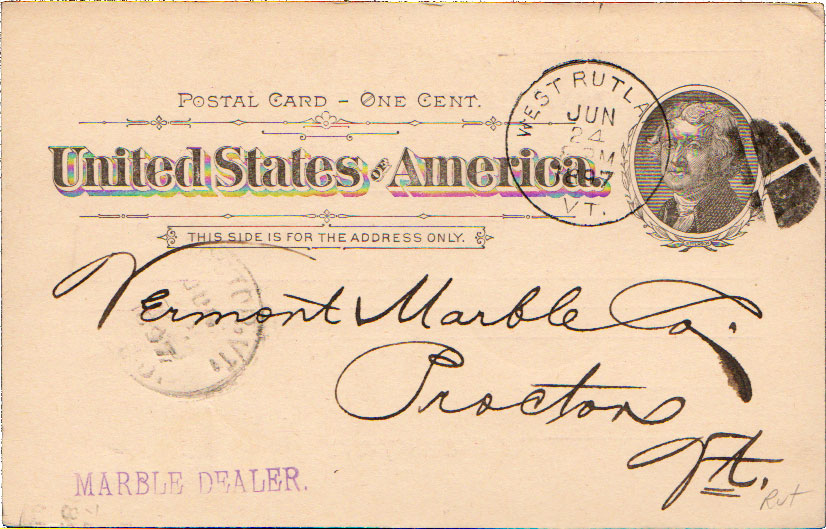 POSTAL CARD - ONE CENT.
United States of America.
THIS SIDE IS FOR THE ADDRESS ONLY.
WEST RUTLA
JUN
24
M
1897
VT.
Vermont Marble Co,
Proctor
Vt.
MARBLE DEALER.
Rut